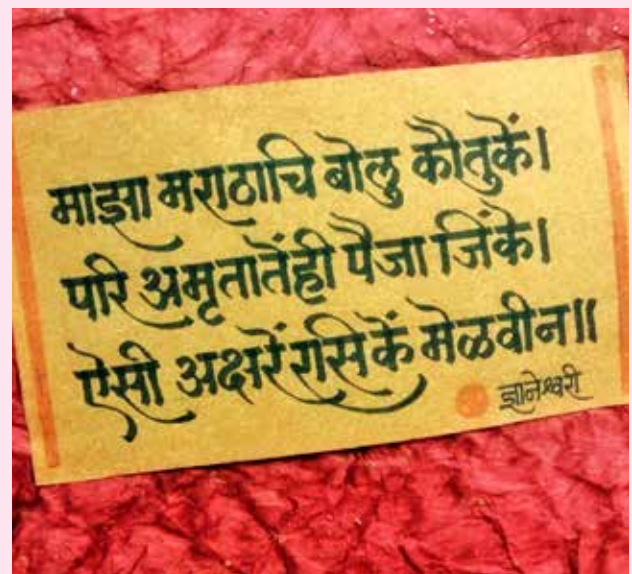 माझा मराठाचि बोलु कौतुकें।
परि अमृतातेंही पैजा जिंके।
ऐसी अक्षरें रसिकें मेळवीन॥
ज्ञानेश्वरी